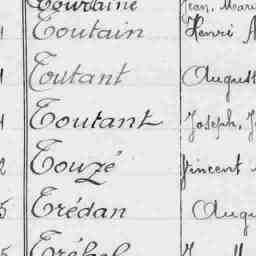 Tourtaine Jean, Marie
Toutain Henri
Toutant August
Toutant Joseph, J
Touzé Vincent
Trédan Augu
Tréhel